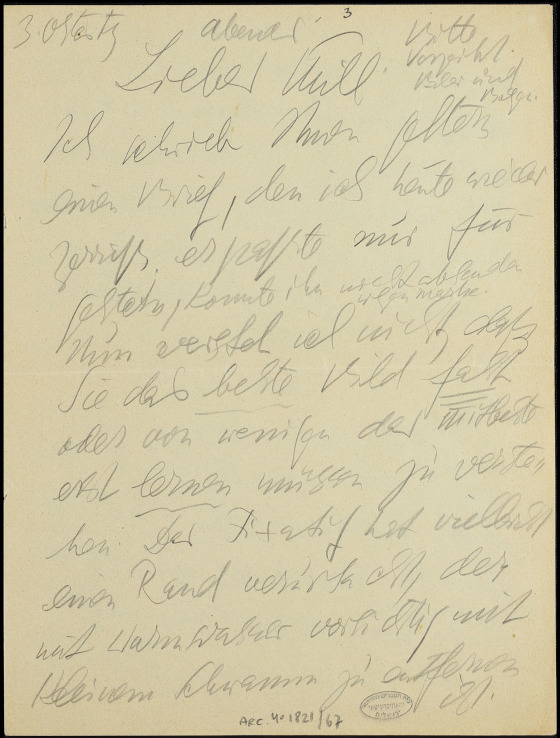 3. Ostertg abends. 3
Bitte
Vorsicht.
Lieber Krill.
Ich schrieb Ihnen gestern
einen Brief, den ich heute wieder
zerriss. er passte nur für
gestern, konnte ihn nicht absenden
wegen Marke.
Nun versteh ich nicht, dass
Sie das beste Bild fast
oder von wenigen das
erst lernen müssen zu verste-
hen. Der Fixatif hat vielleicht
einen Rand verursacht, der
mit warm Wasser vorsichtig mit
kleinem Schwamm zu entfernen
ist.
ARC. 4o 1821/67